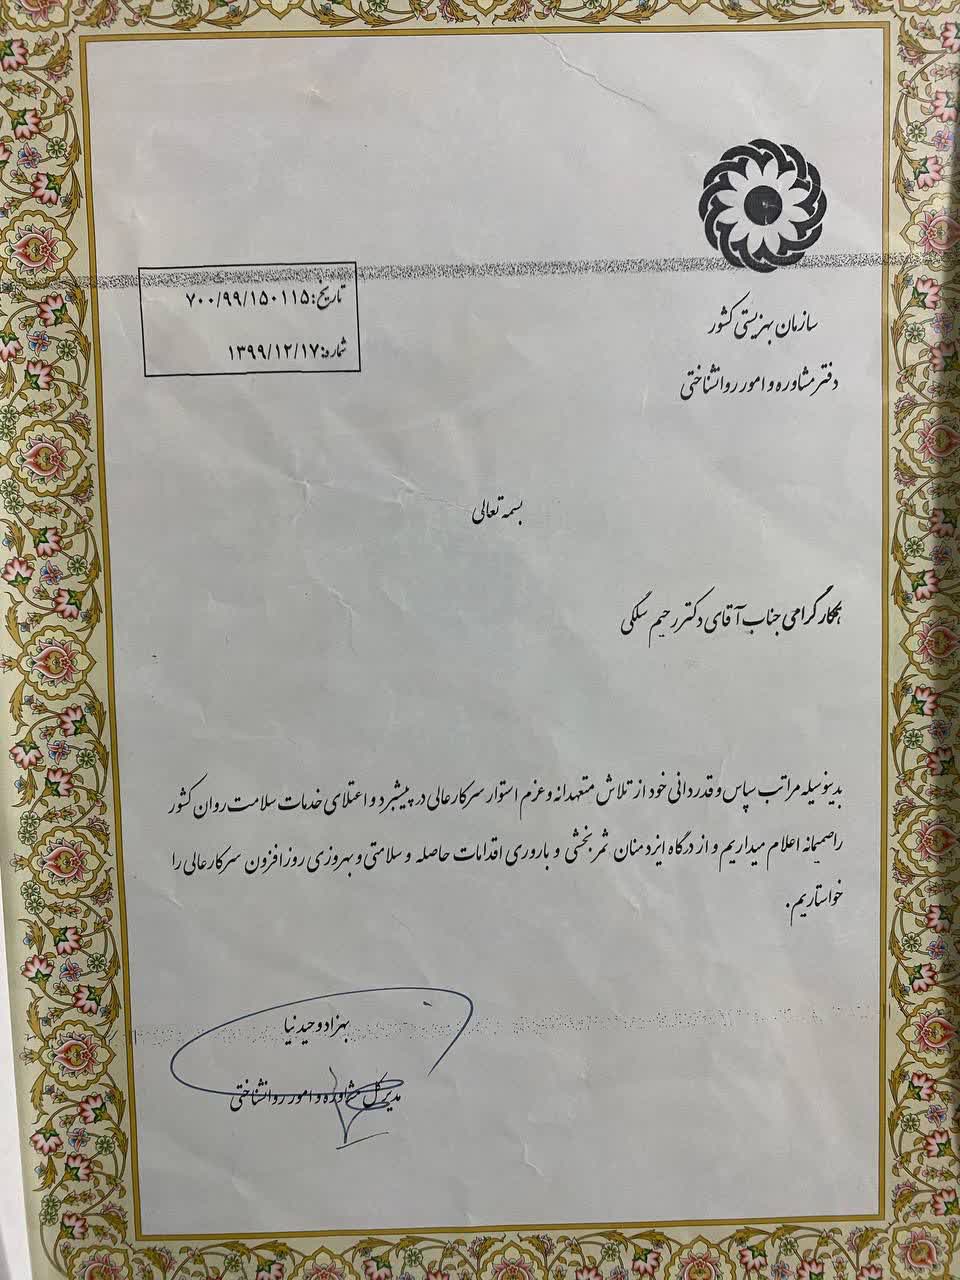 سازمان بهزیستی کشور
دفتر مشاوره و امور روانشناختی
تاریخ: ۷۰۰/۹۹/۱۵۰۱۱۵
شماره: ۱۳۹۹/۱۲/۱۷
بسمه تعالی
همکار گرامی جناب آقای دکتر رحیم سلگی
بدینوسیله مراتب سپاس و قدردانی خود از تلاش متعهدانه و عزم استوار سرکارعالی در پیشبرد و اعتلای خدمات سلامت روان کشور
را صمیمانه اعلام میداریم و از درگاه ایزد منان ثمربخشی و باروری اقدامات حاصله و سلامتی و بهروزی روزافزون سرکارعالی را
خواستاریم.
بهزاد وحیدنیا
مدیرکل مشاوره و امور روانشناختی